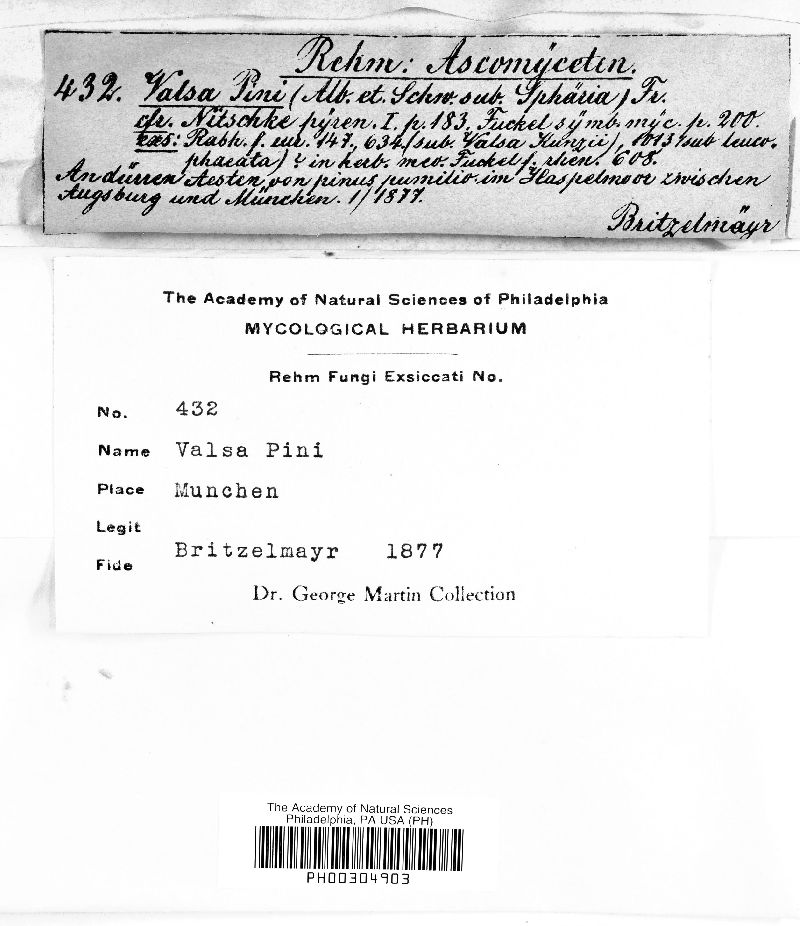 Rehm: Ascomyceten.
432. Valsa Pini (Alb. et. Schw. sub. Sphäria) Fr.
cfr. Nitschke pyren. I. p. 183. Fuckel symb. myc. p. 200
exs: Rabh. f. eur. 147, 634 (sub. Valsa Kunzii), 1013 (sub leuco-
phaeata) in herb. meo. Fuckel f. rhen. 608.
An dürren Aesten von pinus pumilio im Haspelmoor zwischen
Augsburg und München. 1/1877.
Britzelmäyr
The Academy of Natural Sciences of Philadelphia
MYCOLOGICAL HERBARIUM
Rehm Fungi Exsiccati No.
No. 432
Name Valsa Pini
Place Munchen
Legit
Britzelmayr 1877
Fide
Dr. George Martin Collection
The Academy of Natural Sciences
Philadelphia, PA USA (PH)
PH00304903